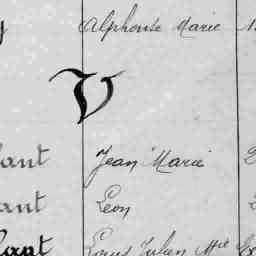 y Alphonse Marie 1
V
lant Jean Marie 2
ant Léon 2
lant Louis Julien Mie